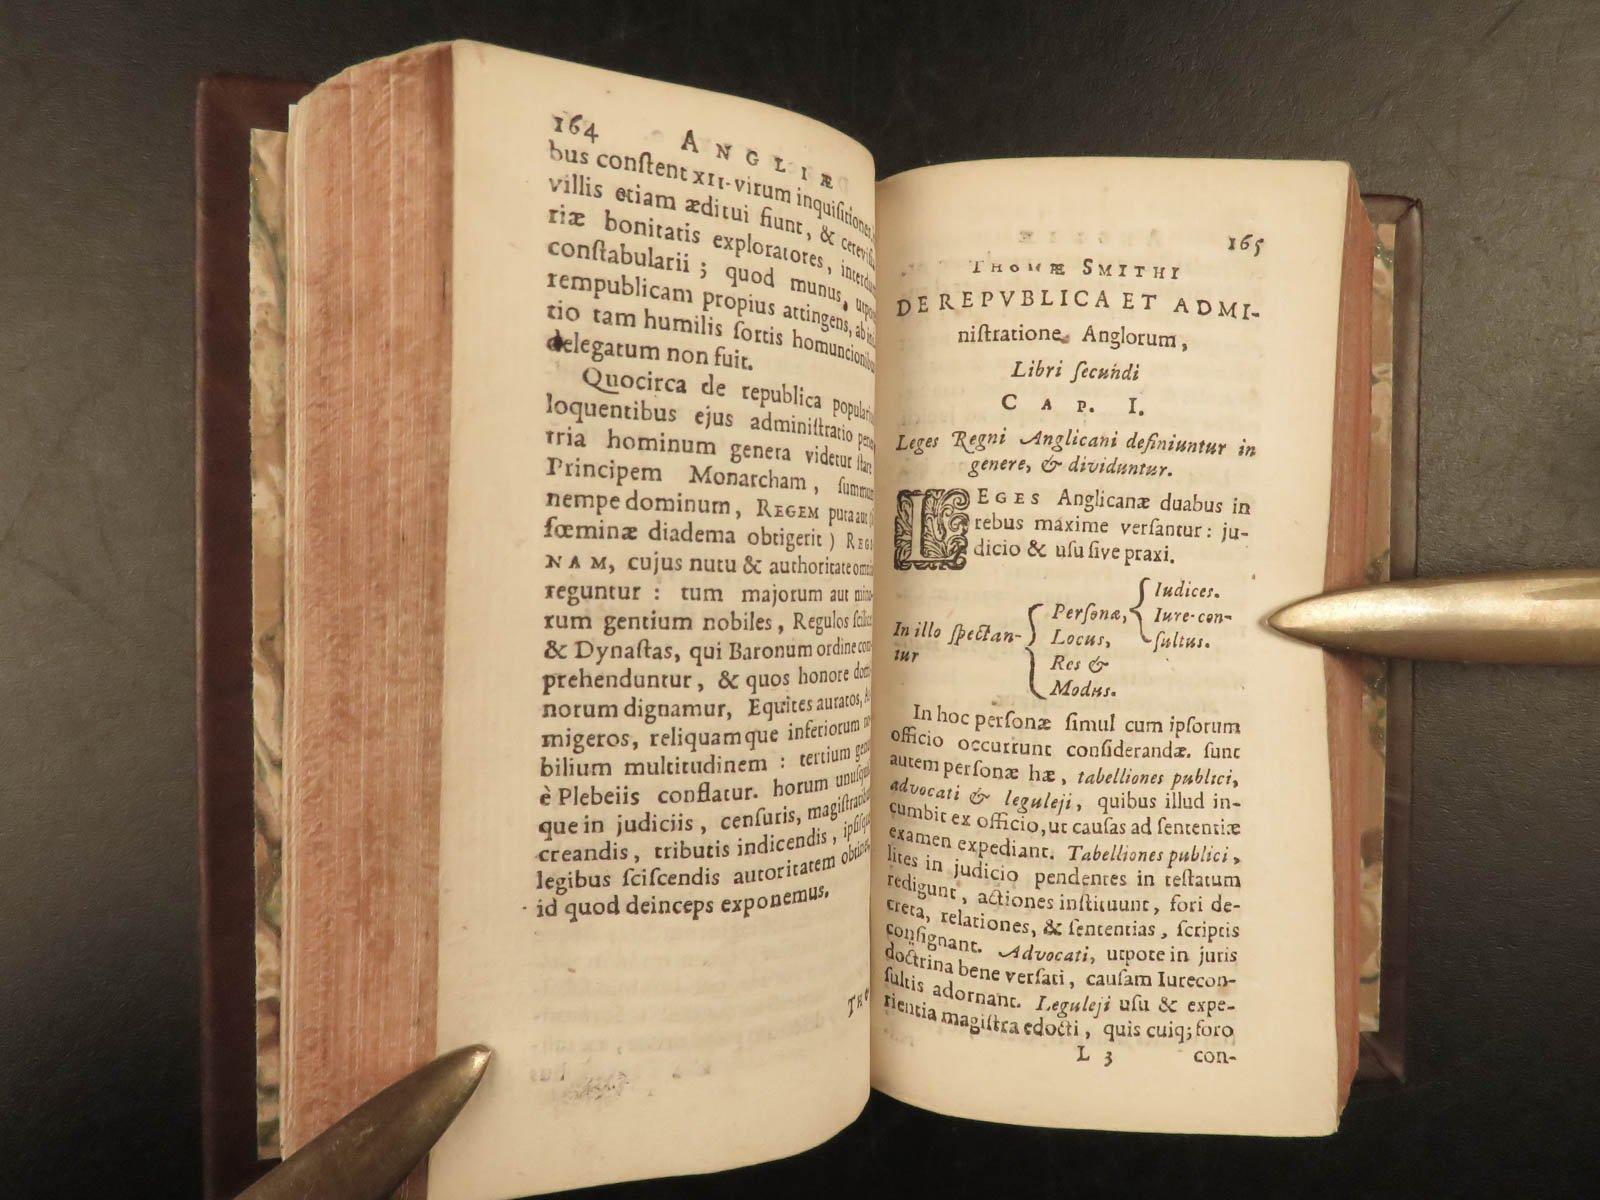 164 ANGLIÆ
bus conſtent XII-virum inquiſitiones,
villis etiam æditui fiunt, & cereviſ
riæ bonitatis exploratores, interdum
conſtabularii; quod munus, utpo
rempublicam propius attingens, ab in
tio tam humilis ſortis homuncionibus
delegatum non fuit.
Quocirca de republica popular
loquentibus ejus adminiſtratio pene
tria hominum genera videtur ſtare
Principem Monarcham, ſummum
nempe dominum, REGEM puta aut (ſi
fœminæ diadema obtigerit) REGI
NAM, cujus nutu & authoritate omnia
reguntur: tum majorum aut mino-
rum gentium nobiles, Regulos ſcilicet
& Dynaſtas, qui Baronum ordine com-
prehenduntur, & quos honore domi-
norum dignamur, Equites auratos, Ar
migeros, reliquamque inferiorum no
bilium multitudinem: tertium genus
è Plebeiis conflatur. horum unuſquiſ
que in judiciis, cenſuris, magiſtratibus
creandis, tributis indicendis, ipſiſque
legibus ſciſcendis autoritatem obtinet,
id quod deinceps exponemus.
THO
165
THOMÆ SMITHI
DE REPVBLICA ET ADMI-
niſtratione Anglorum,
Libri ſecundi
CAP. I.
Leges Regni Anglicani definiuntur in
genere, & dividuntur.
LEGES Anglicanæ duabus in
rebus maxime verſantur: ju-
dicio & uſu ſive praxi.
In illo ſpectan-
tur
Perſonæ,
Locus,
Res &
Modus.
Iudices.
Iure-con-
ſultus.
In hoc perſonæ ſimul cum ipſorum
officio occurrunt conſiderandæ. ſunt
autem perſonæ hæ, tabelliones publici,
advocati & leguleji, quibus illud in-
cumbit ex officio, ut cauſas ad ſententiæ
examen expediant. Tabelliones publici,
lites in judicio pendentes in teſtatum
redigunt, actiones inſtituunt, fori de-
creta, relationes, & ſententias, ſcriptis
conſignant. Advocati, utpote in juris
doctrina bene verſati, cauſam Iurecon-
ſultis adornant. Leguleji uſu & expe-
rientia magiſtra edocti, quis cuiq; foro
L 3 con-